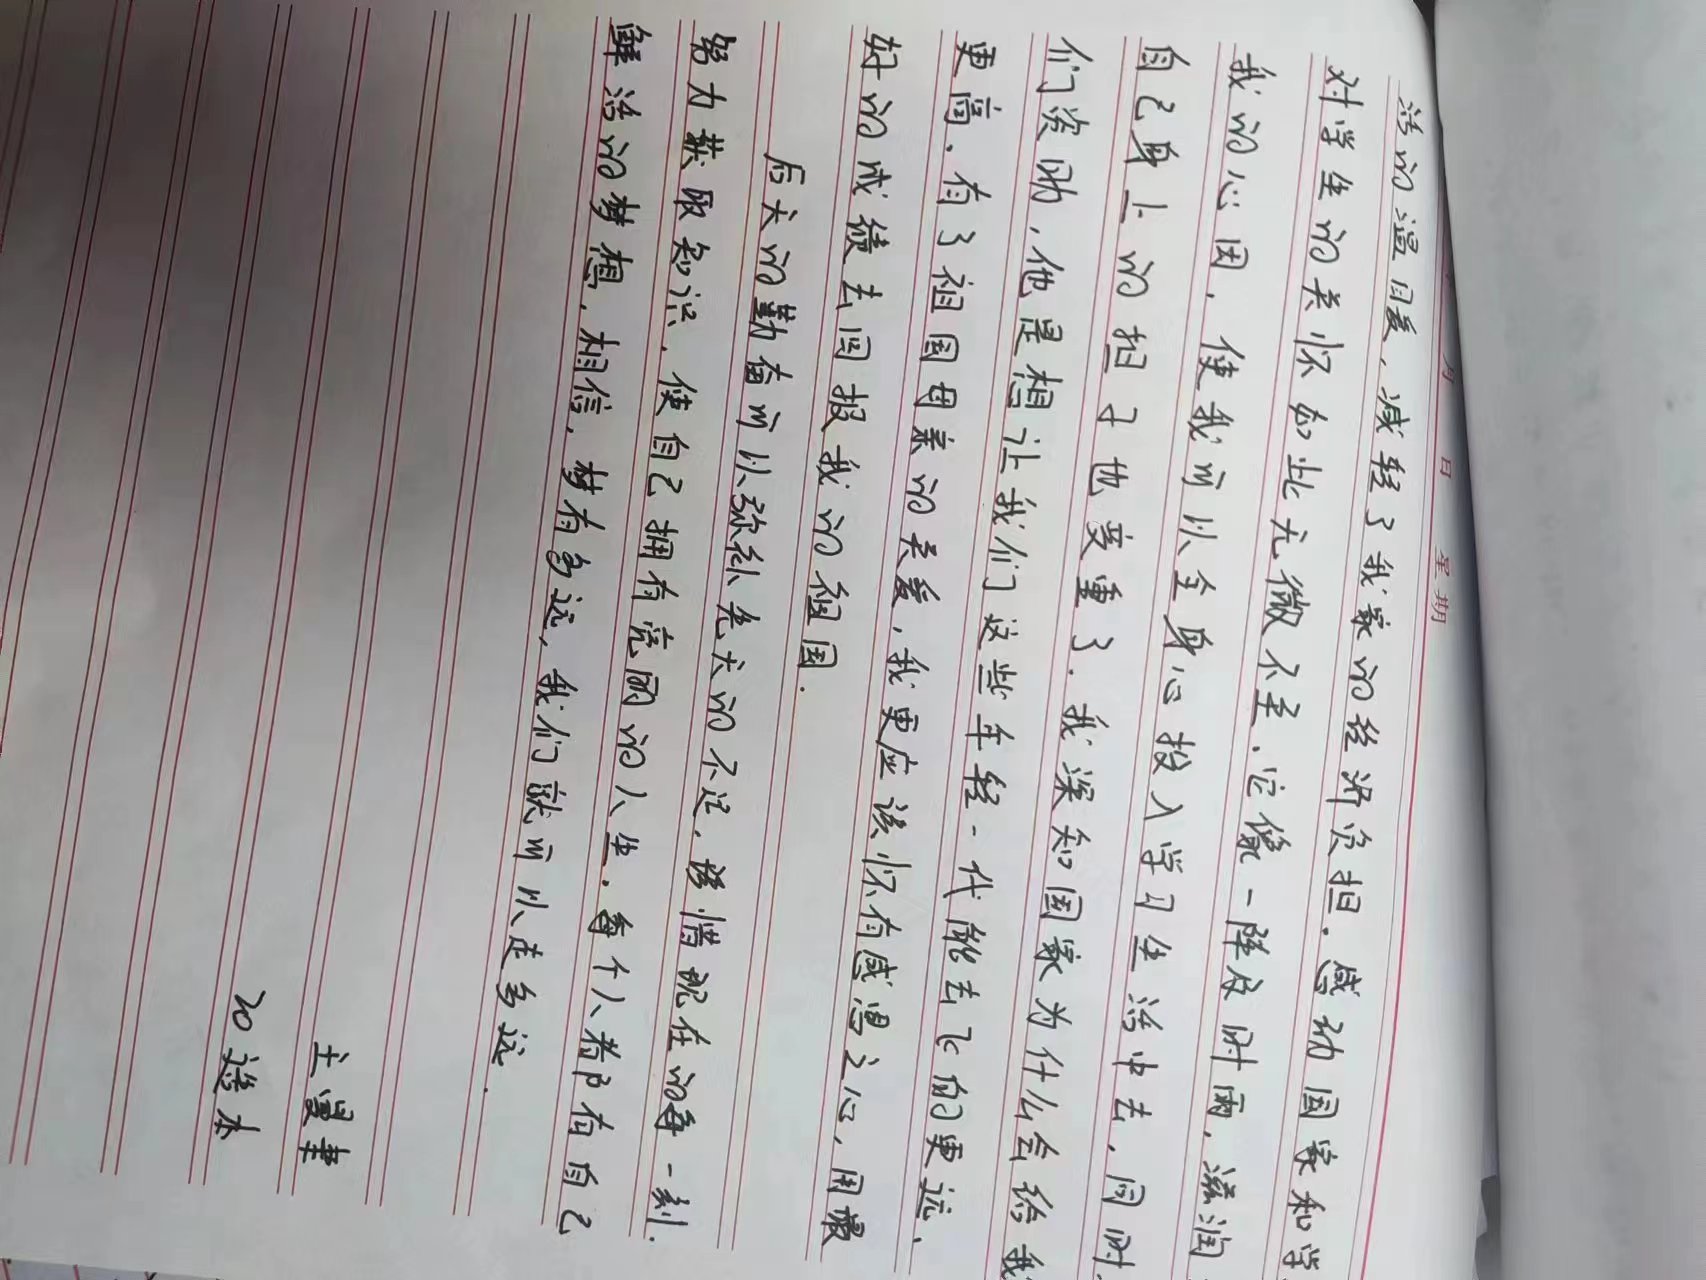 月 日 星期
活的温暖，减轻了我家的经济负担。感动国家和学
对学生的关怀如此无微不至。它像一阵及时雨，滋润
我的心田，使我可以全身心投入学习生活中去，同时，
自己身上的担子也变重了。我深知国家为什么会给我
们资助，他是想让我们这些年轻一代能去飞的更远，
更高。有了祖国母亲的关爱，我更应该怀有感恩之心，用最
好的成绩去回报我的祖国。
后天的勤奋可以弥补先天的不足，珍惜现在的每一刻.
努力获取知识，使自己拥有亮丽的人生。每个人都有自己
鲜活的梦想，相信，梦有多远，我们就可以走多远.
20造本